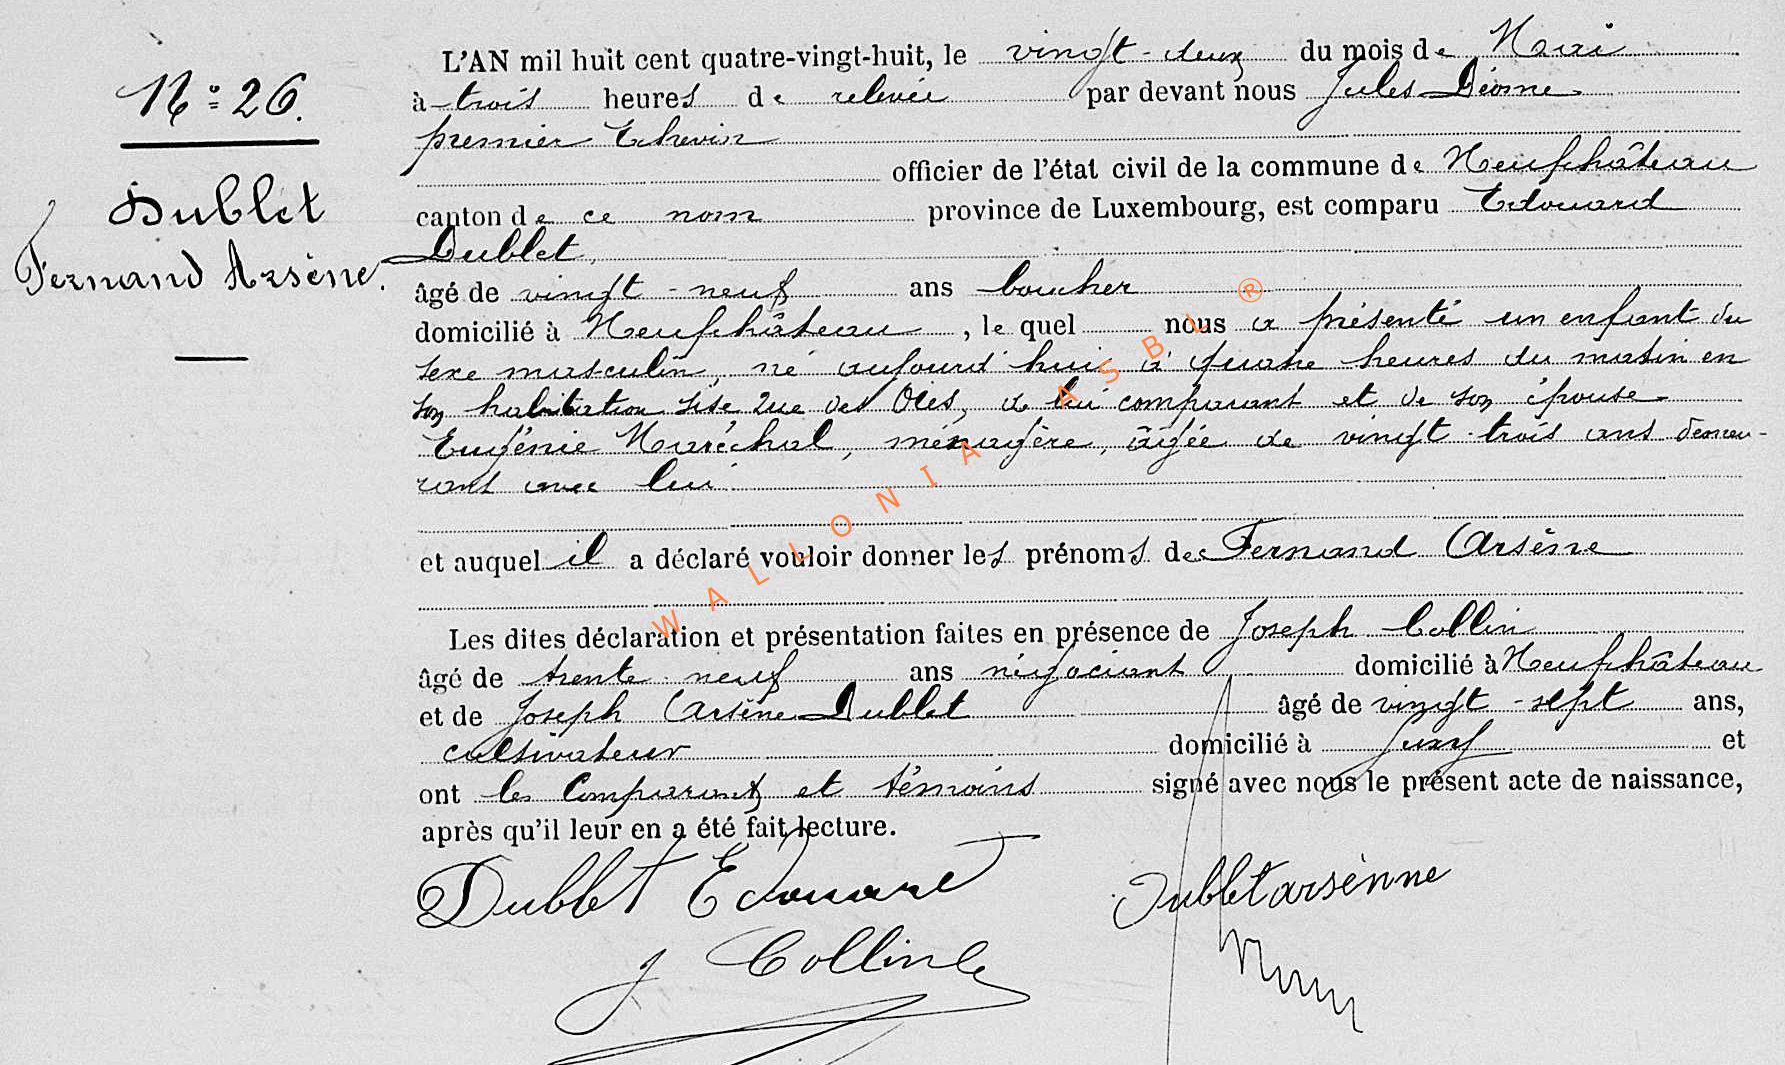 N° 26.
Dublet
Fernand Arsène.
L'AN mil huit cent quatre-vingt-huit, le vingt-deux du mois de Mai
à trois heures de relevée par devant nous Jules Déome
premier Echevin
officier de l'état civil de la commune de Neufchâteau
canton de ce nom province de Luxembourg, est comparu Edouard
Dublet,
âgé de vingt-neuf ans boucher
domicilié à Neufchâteau, le quel nous a présenté un enfant du
sexe masculin, né aujourd'hui à quatre heures du matin en
son habitation sise rue des Oies, de lui comparant et de son épouse
Eugénie Maréchal, ménagère, âgée de vingt-trois ans demeu-
rant avec lui.
et auquel il a déclaré vouloir donner les prénoms de Fernand Arsène
Les dites déclaration et présentation faites en présence de Joseph Collin
âgé de trente-neuf ans négociant domicilié à Neufchâteau
et de Joseph Arsène Dublet âgé de vingt-sept ans,
cultivateur domicilié à Jusy et
ont les Comparant et témoins signé avec nous le présent acte de naissance,
après qu'il leur en a été fait lecture.
Dublet Edouard
Dubletarsènne
J Collin
WALLONIA ASBL ®